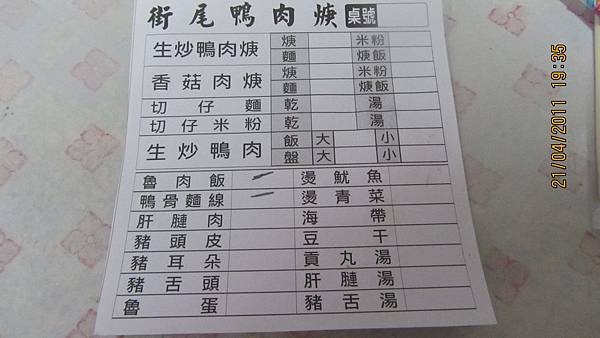 街尾鴨肉焿 桌號
生炒鴨肉焿 焿 米粉
麵 焿飯
香菇肉焿 焿 米粉
麵 焿飯
切仔麵 乾 湯
切仔米粉 乾 湯
生炒鴨肉 飯 大 小
盤 大 小
魯肉飯 一 燙魷魚
鴨骨麵線 一 燙青菜
肝膶肉 海帶
豬頭皮 豆干
豬耳朵 貢丸湯
豬舌頭 肝膶湯
魯蛋 豬舌湯
21/04/2011 19:35